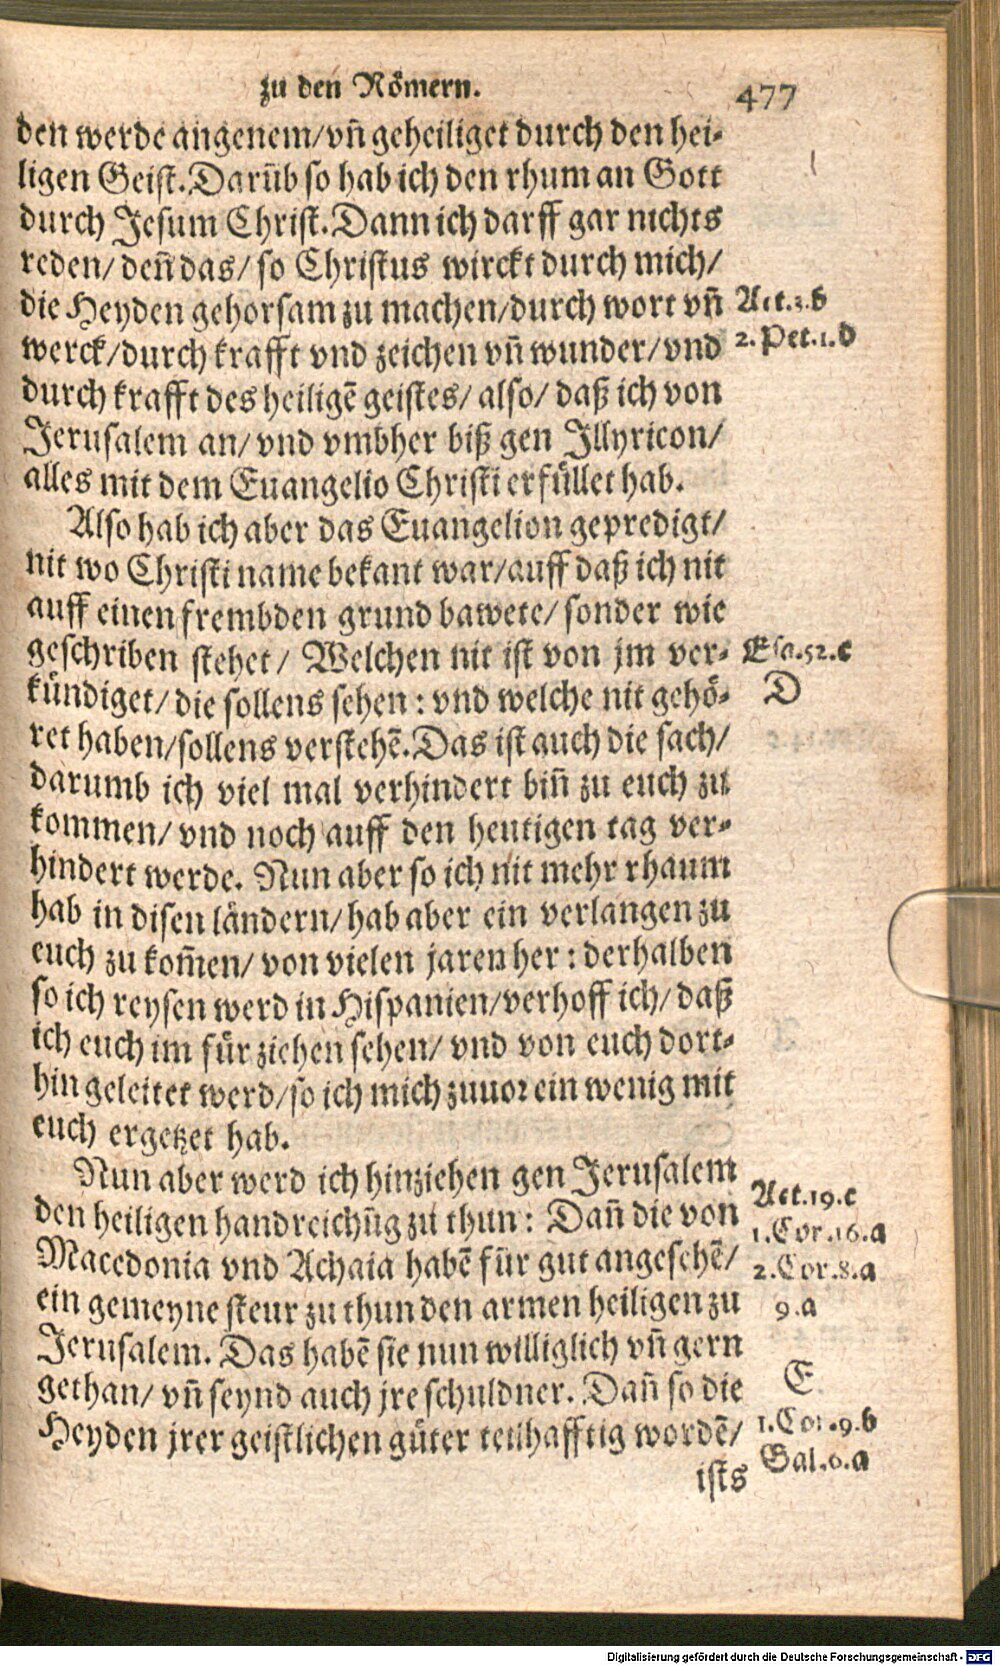 zu den Römern.
477
den werde angenem/vñ geheiliget durch den hei-
ligen Geist. Darüb so hab ich den rhum an Gott
durch Jesum Christ. Dann ich darff gar nichts
reden/ deñ das/ so Christus wirckt durch mich/
die Heyden gehorsam zu machen/durch wort vñ
Act.3.b
werck/durch krafft vnd zeichen vñ wunder/vnd
2.Pet.1.d
durch krafft des heiligē geistes/ also/ daß ich von
Jerusalem an/ vnd vmbher biß gen Jllyricon/
alles mit dem Euangelio Christi erfüllet hab.
Also hab ich aber das Euangelion gepredigt/
nit wo Christi name bekant war/auff daß ich nit
auff einen frembden grund bawete/ sonder wie
geschriben stehet/ Welchen nit ist von jm ver-
Esa.52.c
kündiget/ die sollens sehen : vnd welche nit gehö-
D
ret haben/sollens verstehē. Das ist auch die sach/
darumb ich viel mal verhindert biñ zu euch zu
kommen/ vnd noch auff den heutigen tag ver-
hindert werde. Nun aber so ich nit mehr rhaum
hab in disen ländern/ hab aber ein verlangen zu
euch zu kom̃en/ von vielen jaren her : derhalben
so ich reysen werd in Hispanien/verhoff ich/ daß
ich euch im für ziehen sehen/ vnd von euch dort-
hin geleitet werd/so ich mich zuuor ein wenig mit
euch ergetzet hab.
Nun aber werd ich hinziehen gen Jerusalem
Act.19.c
den heiligen handreichũg zu thun : Dañ die von
1.Cor.16.a
Macedonia vnd Achaia habē für gut angesehē/
2.Cor.8.a
ein gemeyne steur zu thun den armen heiligen zu
9.a
Jerusalem. Das habē sie nun williglich vñ gern
gethan/ vñ seynd auch jre schuldner. Dañ so die
E
Heyden jrer geistlichen güter teilhafftig wordē/
1.Cor.9.b
Gal.6.a
ists
Digitalisierung gefördert durch die Deutsche Forschungsgemeinschaft - DFG